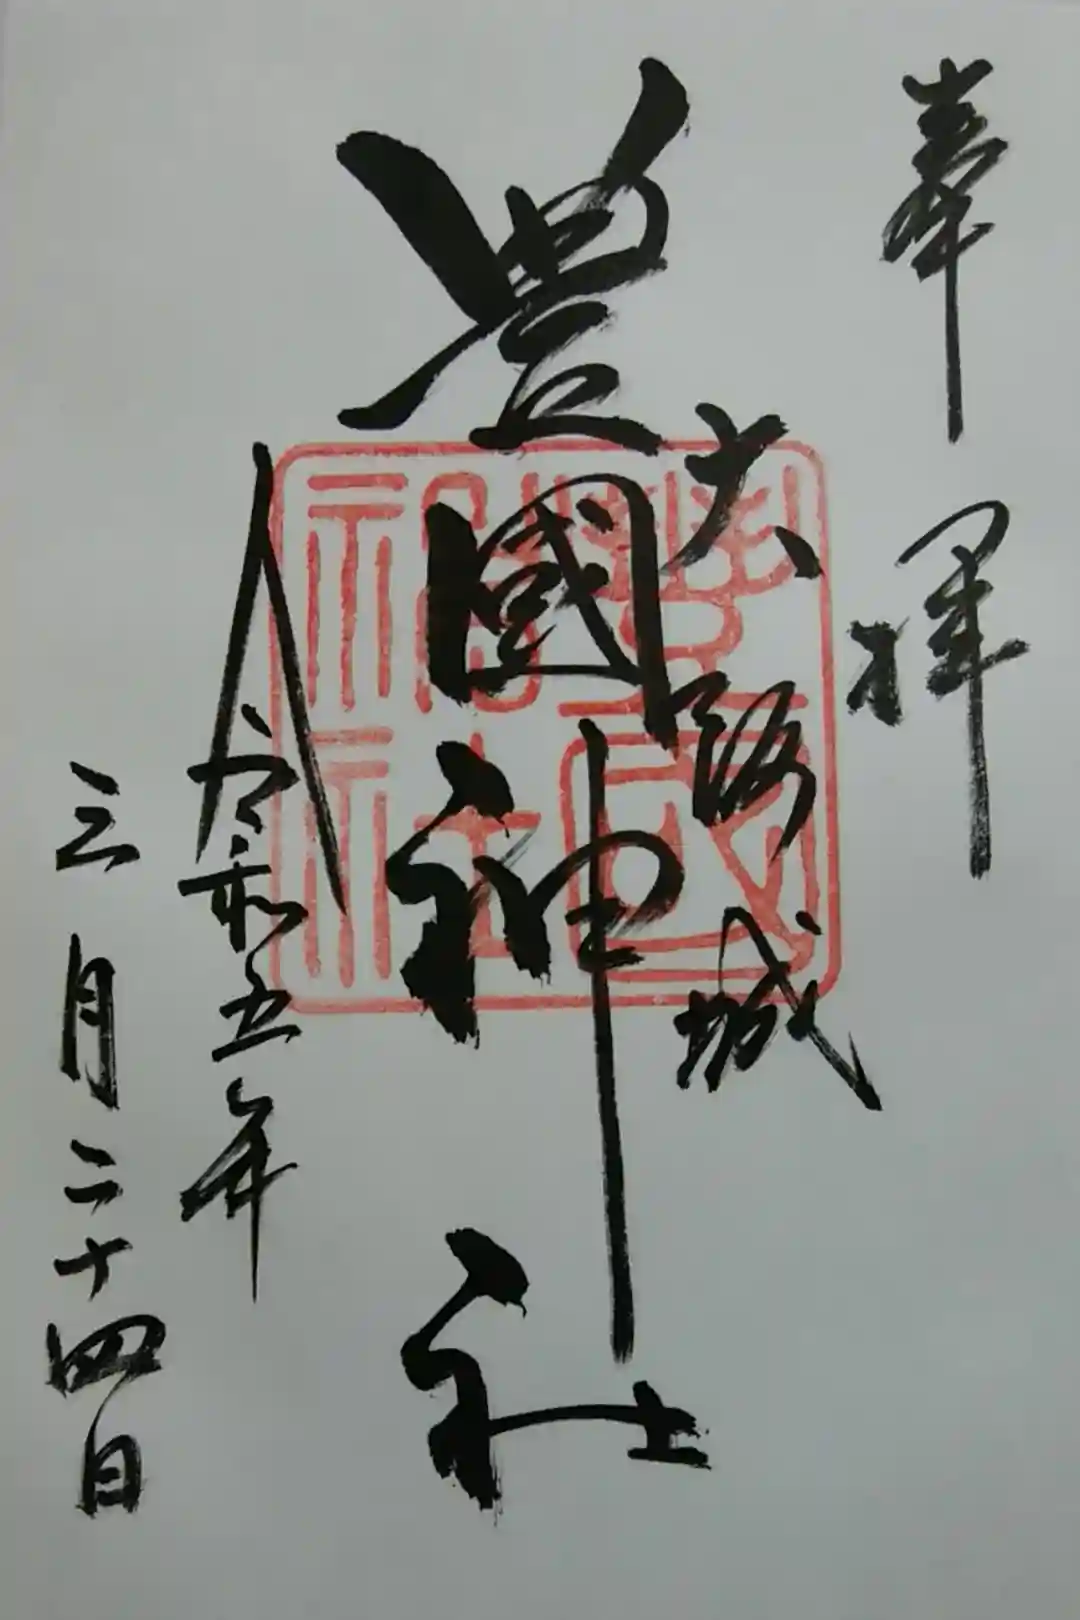 奉拝
大阪城
豊國神社
令和五年
三月二十四日
豊國神社